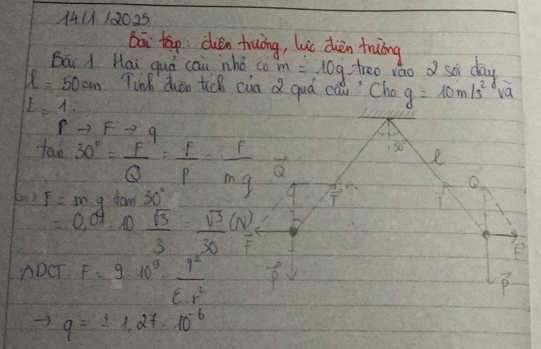 14/1/2025
Bài tập: điện trường, lực điện trường
Bài 1. Hai quả cầu nhỏ có m = 10g treo vào 2 sợi dây
l = 50cm. Tính điện tích của 2 quả cầu. Cho g = 10m/s² và
ε = 1.
P → F → q
tan 30° = F/Q = F/P = F/mg
⇔ F = mg tan 30°
= 0,01 · 10 · √3/3 = √3/30 (N)
ADCT: F = 9 · 10⁹ · q²/ε.r²
→ q = ± 1,27 · 10⁻⁶
30°
l
Q
T
F
P
T
Q
F
P